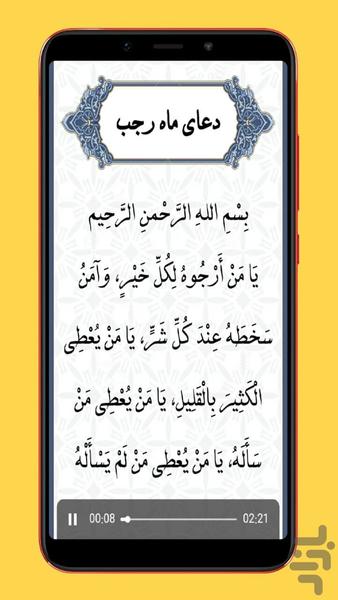 دعای ماه رجب
بِسْمِ اللهِ الرَّحْمنِ الرَّحِیم
یَا مَنْ أَرْجُوهُ لِکُلِّ خَیْرٍ، وَآمَنُ
سَخَطَهُ عِنْدَ کُلِّ شَرٍّ، یَا مَنْ یُعْطِی
الْکَثِیرَ بِالْقَلِیلِ، یَا مَنْ یُعْطِی مَنْ
سَأَلَهُ، یَا مَنْ یُعْطِی مَنْ لَمْ یَسْأَلْهُ
00:08 02:21
بازار